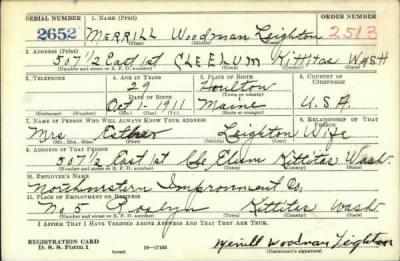 SERIAL NUMBER 1. NAME (Print) ORDER NUMBER
2652 MERRILL Woodman Leighton 2513
(First) (Middle) (Last)
2. ADDRESS (Print)
507 1/2 East 1st CLE ELUM Kittitas WASH
(Number and street or R. F. D. number) (Town) (County) (State)
3. TELEPHONE 4. AGE IN YEARS 5. PLACE OF BIRTH 6. COUNTRY OF CITIZENSHIP
29 Houlton
DATE OF BIRTH (Town or county)
Oct 1- 1911 Maine U.S.A.
(Exchange) (Number) (Mo.) (Day) (Yr.) (State or country)
7. NAME OF PERSON WHO WILL ALWAYS KNOW YOUR ADDRESS 8. RELATIONSHIP OF THAT PERSON
Mrs Esther Leighton Wife
(Mr., Mrs., Miss) (First) (Middle) (Last)
9. ADDRESS OF THAT PERSON
507 1/2 East 1st Cle Elum Kittitas Wash.
(Number and street or R. F. D. number) (Town) (County) (State)
10. EMPLOYER'S NAME
Northwestern Improvement Co.
11. PLACE OF EMPLOYMENT OR BUSINESS
No 5 Roslyn Kittitas Wash.
(Number and street or R. F. D. number) (Town) (County) (State)
I AFFIRM THAT I HAVE VERIFIED ABOVE ANSWERS AND THAT THEY ARE TRUE.
REGISTRATION CARD
D. S. S. Form 1 (over) 16-17105 Merrill Woodman Leighton
(Registrant's signature)